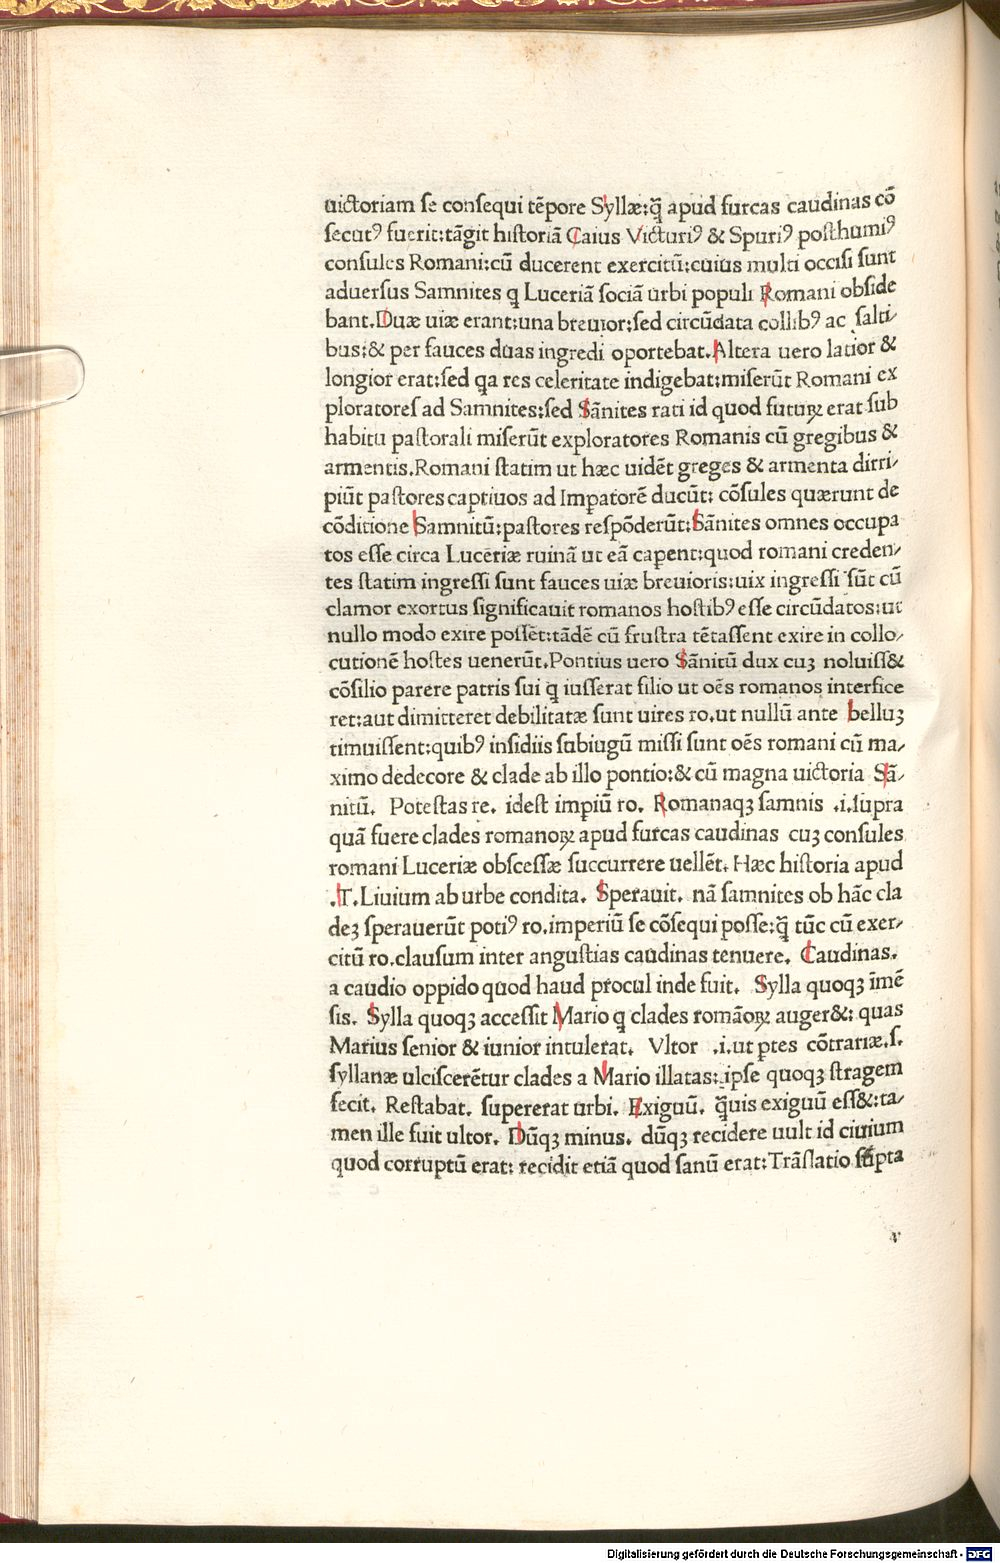 uictoriam ſe conſequi tēpore Syllæ:q̄ apud furcas caudinas cō
ſecutꝰ fuerit:tāgit hiſtoriā Caius Victuriꝰ & Spuriꝰ poſthumiꝰ
conſules Romani:cū ducerent exercitū:cuius multi occiſi ſunt
aduerſus Samnites q Luceriā ſociā urbi populi Romani obſide
bant.Duæ uiæ erant:una breuior:ſed circūdata collibꝰ ac ſalti/
bus:& per fauces duas ingredi oportebat.Altera uero latior &
longior erat:ſed qa res celeritate indigebat:miſerūt Romani ex
ploratoreſ ad Samnites:ſed Sānites rati id quod futuꝝ erat ſub
habitu paſtorali miſerūt exploratores Romanis cū gregibus &
armentis.Romani ſtatim ut hæc uidēt greges & armenta dirri/
piūt paſtores captiuos ad Impatorē ducūt: cōſules quærunt de
cōditione Samnitū:paſtores reſpōderūt:Sānites omnes occupa
tos eſſe circa Luceriæ ruinā ut eā capent:quod romani creden/
tes ſtatim ingreſſi ſunt fauces uiæ breuioris:uix ingreſſi ſūt cū
clamor exortus ſignificauit romanos hoſtibꝰ eſſe circūdatos:ut
nullo modo exire poſſēt:tādē cū fruſtra tētaſſent exire in collo/
cutionē hoſtes uenerūt.Pontius uero Sānitū dux cuꝫ noluiſſ&
cōſilio parere patris ſui q iuſſerat filio ut oēs romanos interfice
ret:aut dimitteret debilitatæ ſunt uires ro.ut nullū ante belluꝫ
timuiſſent:quibꝰ inſidiis ſubiugū miſſi ſunt oēs romani cū ma/
ximo dedecore & clade ab illo pontio:& cū magna uictoria Sā/
nitū. Poteſtas re. ideſt impiū ro. Romanaqꝫ ſamnis .i.ſupra
quā fuere clades romanoꝝ apud furcas caudinas cuꝫ conſules
romani Luceriæ obſceſſæ ſuccurrere uellēt. Hæc hiſtoria apud
.T.Liuium ab urbe condita. Sperauit. nā ſamnites ob hāc cla
deꝫ ſperauerūt potiꝰ ro.imperiū ſe cōſequi poſſe:q̄ tūc cū exer/
citū ro.clauſum inter anguſtias caudinas tenuere. Caudinas.
a caudio oppido quod haud procul inde fuit. Sylla quoqꝫ īmē
ſis. Sylla quoqꝫ acceſſit Mario q clades romāoꝝ auger&: quas
Marius ſenior & iunior intulerat. Vltor .i.ut ptes cōtrariæ.ſ.
ſyllanæ ulciſcerētur clades a Mario illatas:ipſe quoqꝫ ſtragem
fecit. Reſtabat. ſupererat urbi. Exiguū. q̄uis exiguū eſſ&:ta/
men ille fuit ultor. Dūqꝫ minus. dūqꝫ recidere uult id ciuium
quod corruptū erat: recidit etiā quod ſanū erat:Trāſlatio